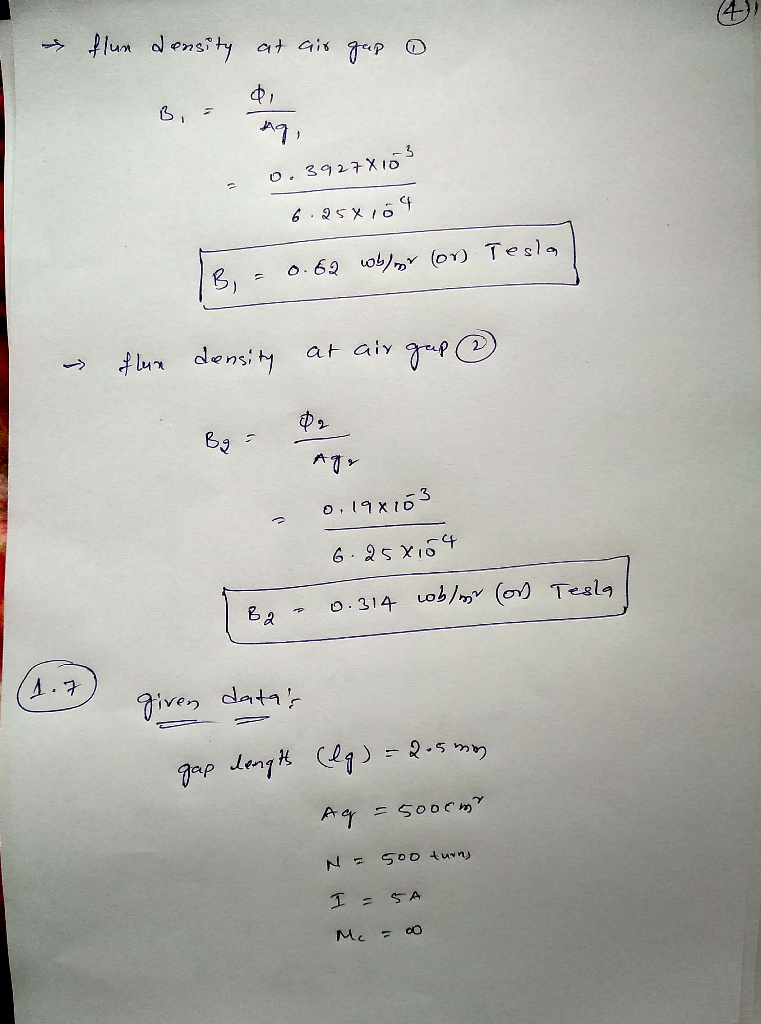 ④
→ flux density at air gap ①
B₁ = Φ₁
Ag₁
= 0.3927×10⁻³
6.25×10⁻⁴
B₁ = 0.62 wb/m² (or) Tesla
→ flux density at air gap ②
B₂ = Φ₂
Ag₂
= 0.19×10⁻³
6.25×10⁻⁴
B₂ = 0.314 wb/m² (or) Tesla
1.7 given data:
gap length (lg) = 2.5 mm
Ag = 500cm²
N = 500 turns
I = 5A
Mc = ∞